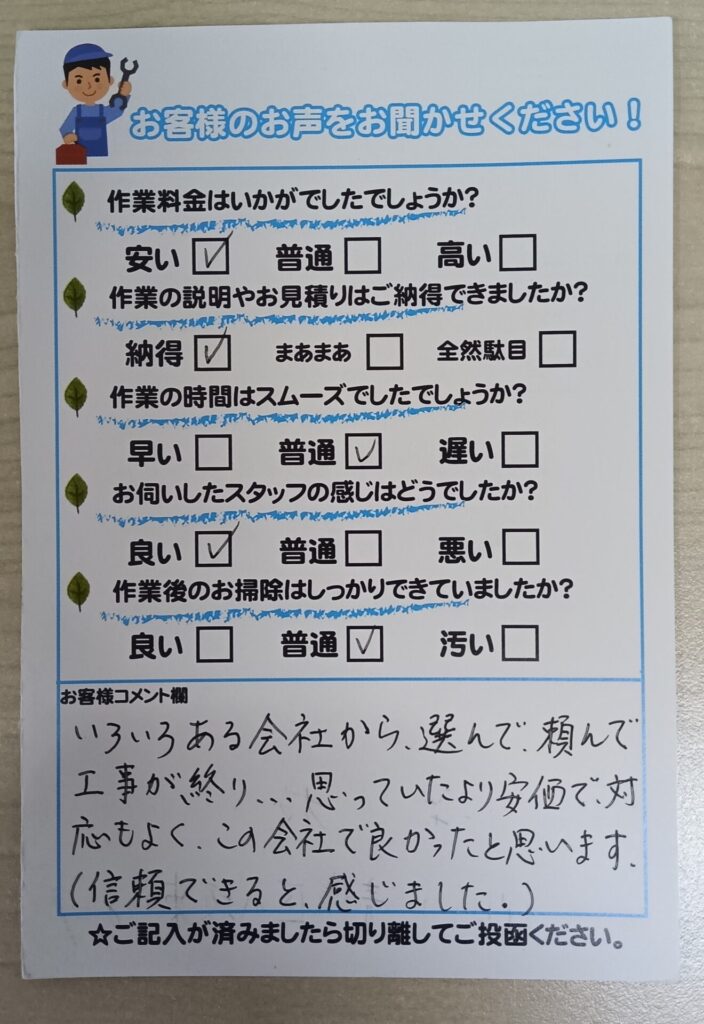 お客様のお声をお聞かせください!
作業料金はいかがでしたでしょうか?
安い ☑ 普通 □ 高い □
作業の説明やお見積りはご納得できましたか?
納得 ☑ まあまあ □ 全然駄目 □
作業の時間はスムーズでしたでしょうか?
早い □ 普通 ☑ 遅い □
お伺いしたスタッフの感じはどうでしたか?
良い ☑ 普通 □ 悪い □
作業後のお掃除はしっかりできていましたか?
良い □ 普通 ☑ 汚い □
お客様コメント欄
いろいろある会社から、選んで、頼んで
工事が終り、、、思っていたより安価で、対
応もよく、この会社で良かったと思います、
(信頼できると、感じました。)
☆ご記入が済みましたら切り離してご投函ください。